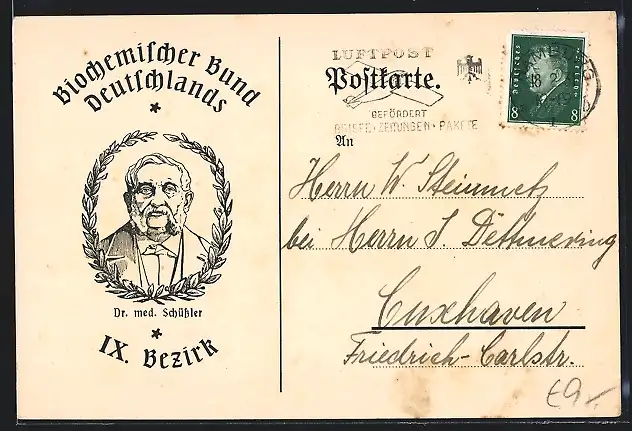 Biochemischer Bund
Deutschlands
Dr. med. Schüßler
IX. Bezirk
LUFTPOST
Postkarte.
GEFÖRDERT
BRIEFE · ZEITUNGEN · PAKETE
An
Herrn W. Steinmetz
bei Herrn J. Dettmering
Cuxhaven
Friedrich-Carlstr.
8 8